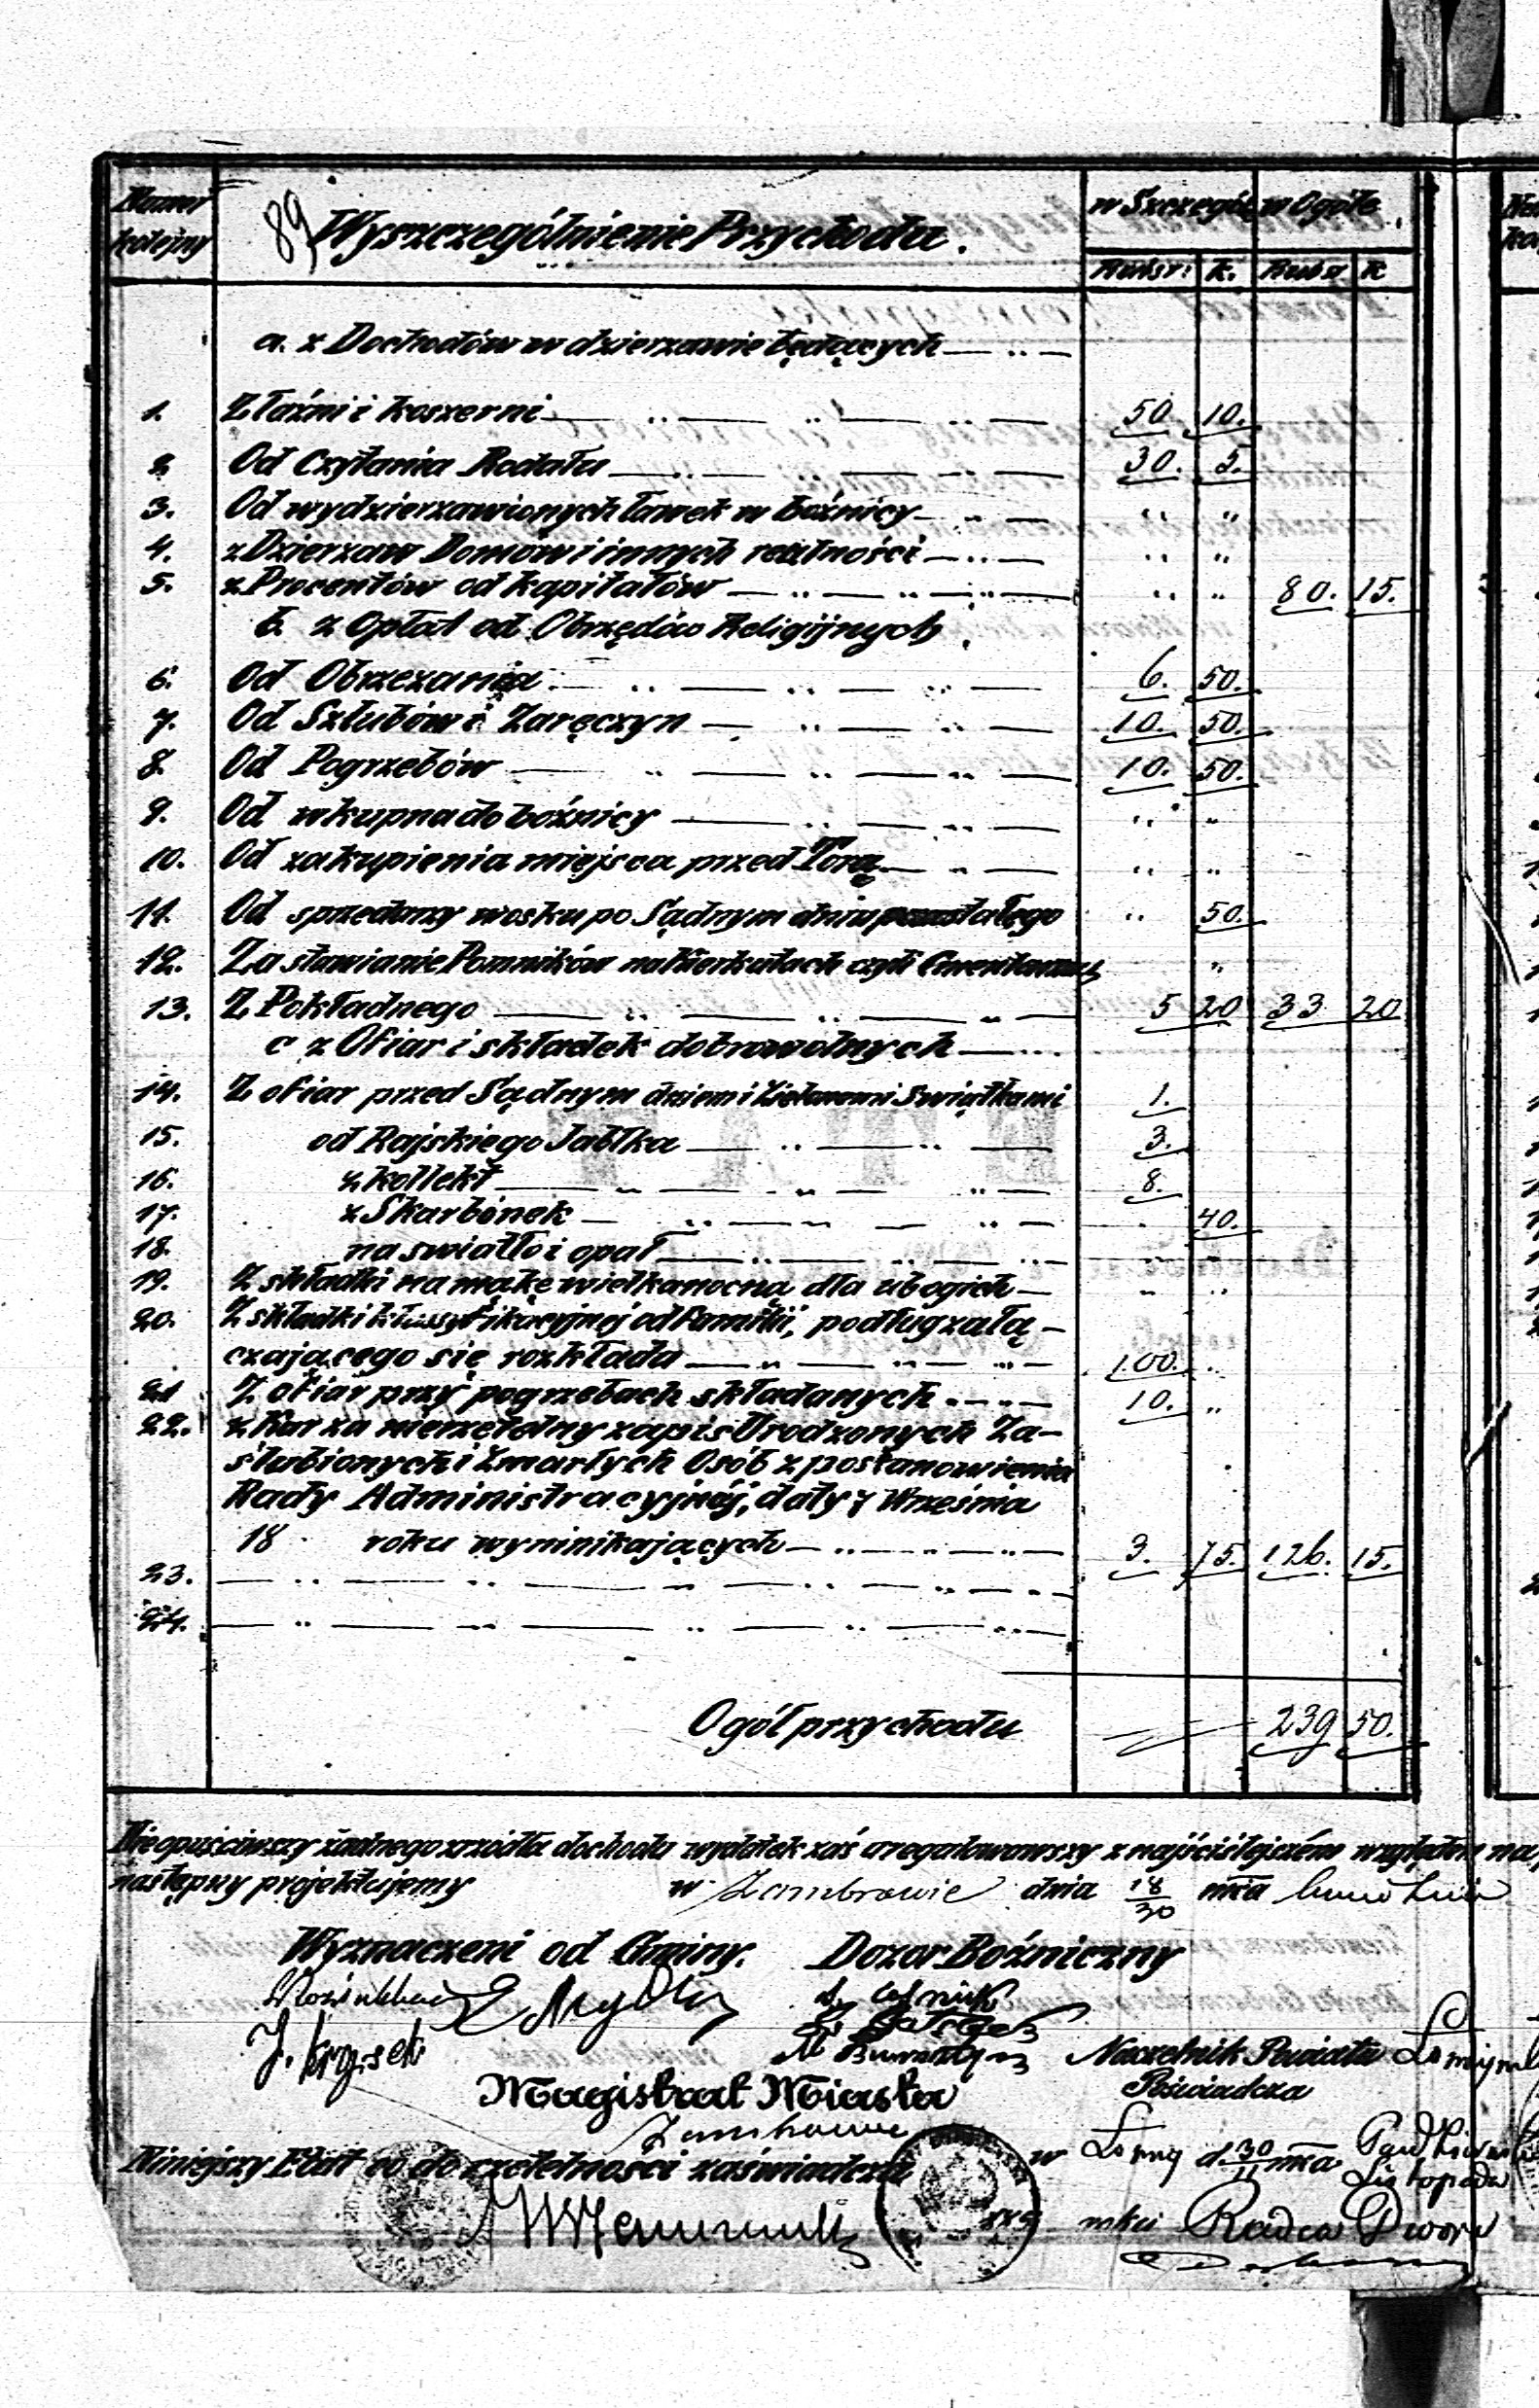 Numer kolejny
89
Wyszczególnienie Przychodu.
w Szczególe w Ogóle
Rubsr: k. Rubsr k
a. z Dochodów w dzierzawie będących
1. Z łaźni i koszerni 50 10.
2. Od Czytania Rodału 30. 5.
3. Od wydzierzawionych ławek w bóźnicy " "
4. z Dzierzaw Domów i innych realności " "
5. z Procentów od kapitałów " " 80. 15.
b. z Opłat od Obrzędów Religijnych
6. Od Obrzezania 6. 50.
7. Od Szlubów i Zaręczyn 10. 50.
8. Od Pogrzebów 10. 50.
9. Od wkupna do bóźnicy " "
10. Od zakupienia miejsca przed Torą " "
11. Od sprzedanzy wosku po Sądnym dniu pozostałego " 50.
12. Za stawianie Pomników na Kierkutach czyli Cmentarzu "
13. Z Pokładnego 5 20 33 20
c z Ofiar i składek dobrowolnych
14. Z ofiar przed Sądnym dniem i Zielonemi Swiątkami 1.
15. od Rajskiego Jabłka 3.
16. z kollekt 8.
17. z Skarbonek 40.
18. na swiatło i opał " "
19. Z składki na mąkę wielkanocną dla ubogich " "
20. Z składki klassyfikacyjnej od Familii, podług załą-
czającego się rozkładu 100. "
21 Z ofiar przy pogrzebach składanych 10. "
22. z Kar za nierzetelny zapis Urodzonych Za-
ślubionych i Zmarłych Osób z postanowienia
Rady Administracyjnéj, daty 7 Września
18 roku wyninikających 3. 75. 126. 15.
23.
24.
Ogół przychodu 239 50.
Nieopuściwszy żadnego zrzódła dochodu wydatek zaś uregulowawszy z najściślejszém względem na,
następny projektujemy w Zambrowie dnia 18/30 mca
Wyznaczeni od Gminy. Dozor Bóźniczny
J. Krysek
Naczelnik Powiatu
Poświadcza
Magistrat Miasta
Niniejszy Etat co do rzetelności zaświadcza
w d 30/11 mca
Listopada
Radca Dworu